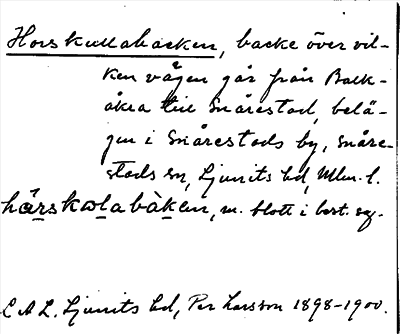 Horskullabacken, backe över vil-
ken vägen går från Balk-
åkra till Snårestad, belä-
gen i Snårestads by, Snåre-
stads sn, Ljunits hd, Mlm. l.
hårskolabàken, m. blott i best. sg.
L A L. Ljunits hd, Per Larsson 1898-1900.